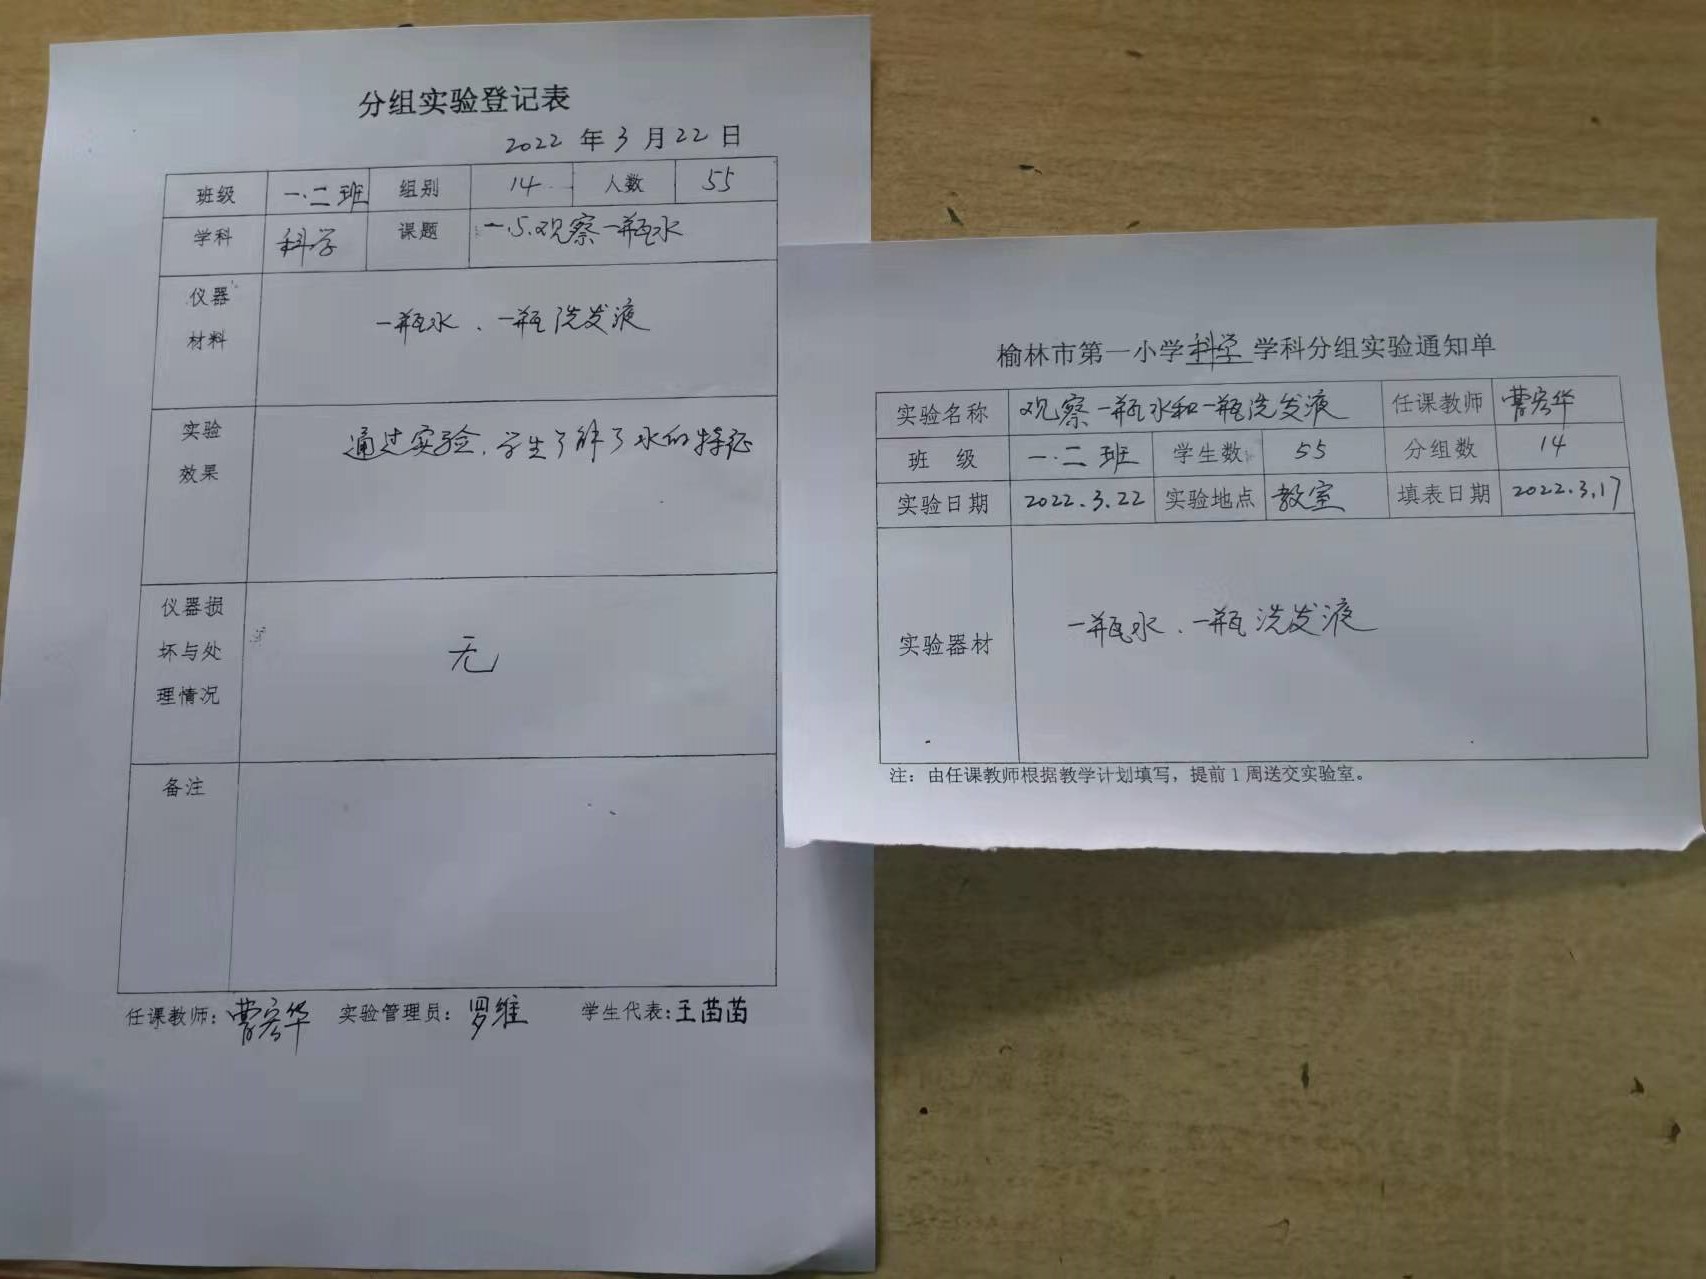 分组实验登记表
2022 年 3 月 22 日
班级 一.二班 组别 14 人数 55
学科 科学 课题 一.5.观察一瓶水
仪器
材料
一瓶水、一瓶洗发液
实验
效果
通过实验,学生了解了水的特征
仪器损
坏与处
理情况
无
备注
任课教师: 曹宏华 实验管理员: 罗维 学生代表: 王苗苗
榆林市第一小学科学学科分组实验通知单
实验名称 观察一瓶水和一瓶洗发液 任课教师 曹宏华
班 级 一.二班 学生数 55 分组数 14
实验日期 2022.3.22 实验地点 教室 填表日期 2022.3.17
实验器材 一瓶水、一瓶洗发液
注: 由任课教师根据教学计划填写, 提前 1 周送交实验室。